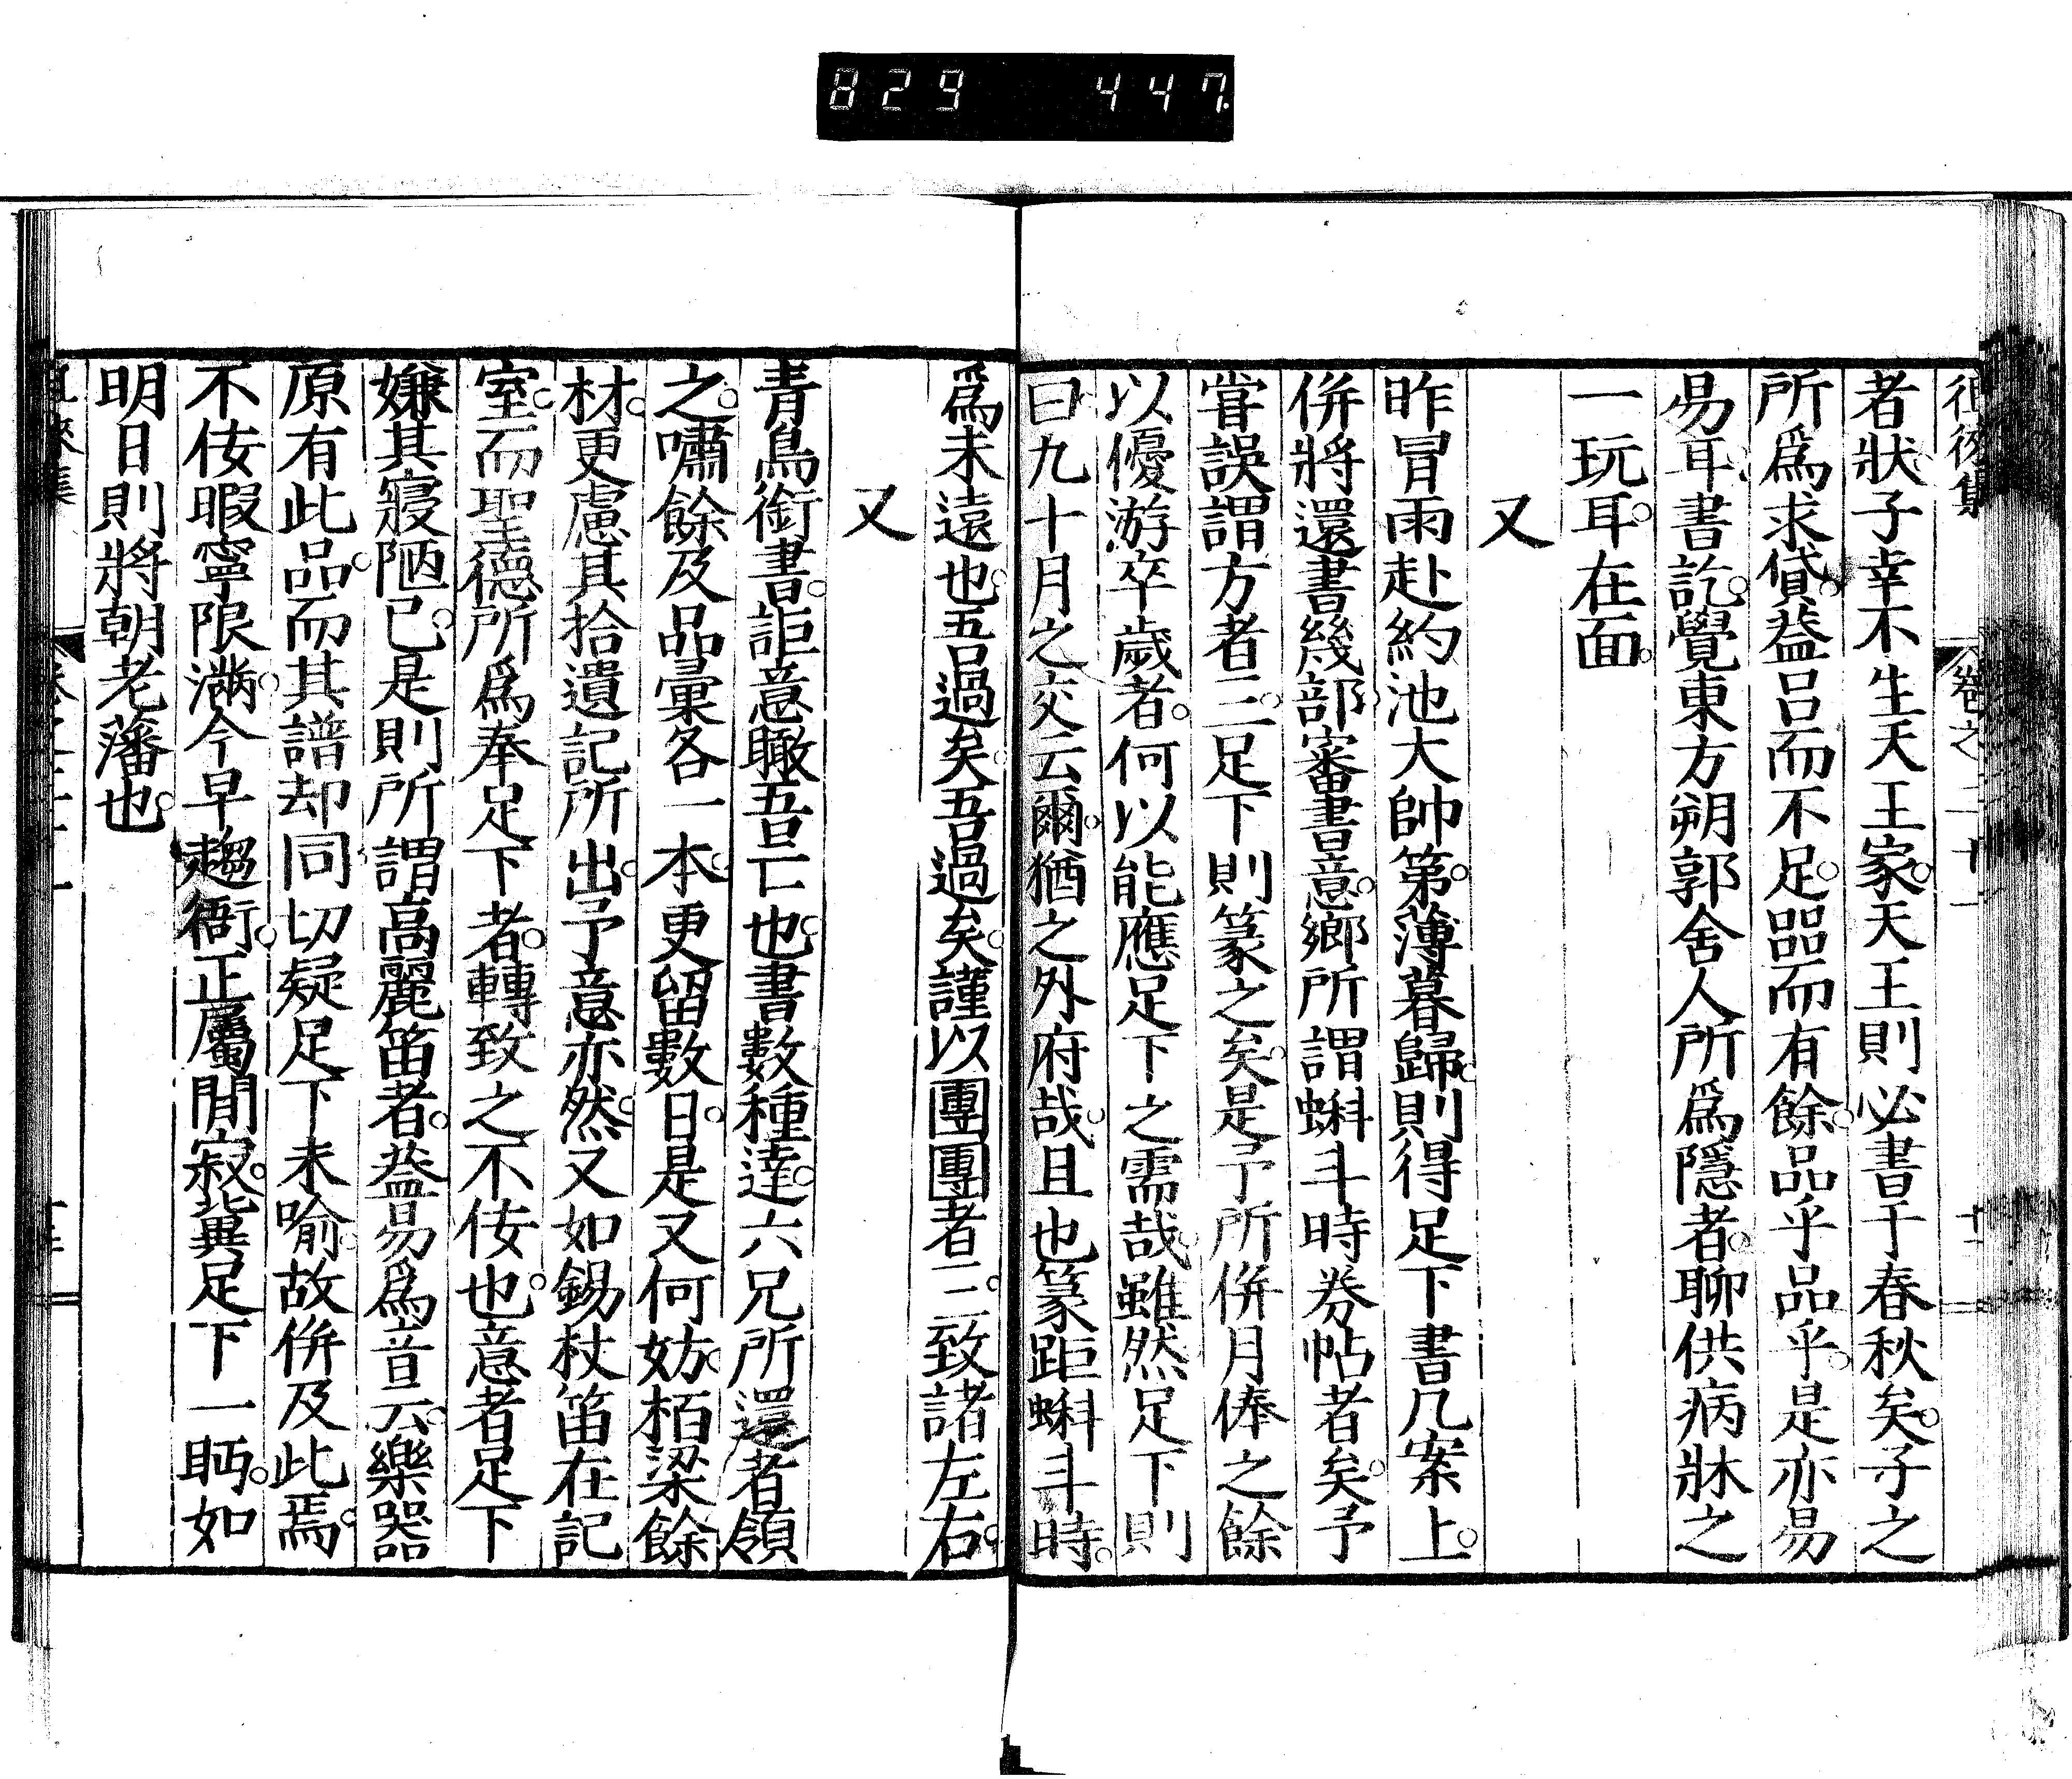 829 447
徂徠集 卷之二十一 十二
者狀子幸不生天王家天王則必書于春秋矣子之
所爲求貸益呂而不足㗊而有餘品乎品乎是亦昜
昜耳書訖覺東方朔郭舍人所爲隱者聊供病牀之
一玩耳在面
又
昨冒雨赴約池大帥第薄暮歸則得足下書几案上
併將還書幾部審書意鄉所謂蝌斗時券帖者矣予
甞誤謂方者三足下則篆之矣是予所併月俸之餘
以優游卒歲者何以能應足下之需哉雖然足下則
曰九十月之交云爾猶之外府哉且也篆距蝌斗時
爲未遠也吾過矣吾過矣謹以團團者三致諸左右
又
青鳥銜書詎意瞰吾亡也書數種達六兄所還者領
之嘯餘及品彙各一本更留數日是又何妨栢梁餘
材更慮其拾遺記所出予意亦然又如錫杖笛在記
室而聖德所爲奉足下者轉致之不佞也意者足下
嫌其寢陋已是則所謂高麗笛者益昜爲音云樂器
原有此品而其譜却同切疑足下未喻故併及此焉
不佞暇寧限滿今早趨衙正屬閒寂冀足下一眄如
明日則將朝老藩也